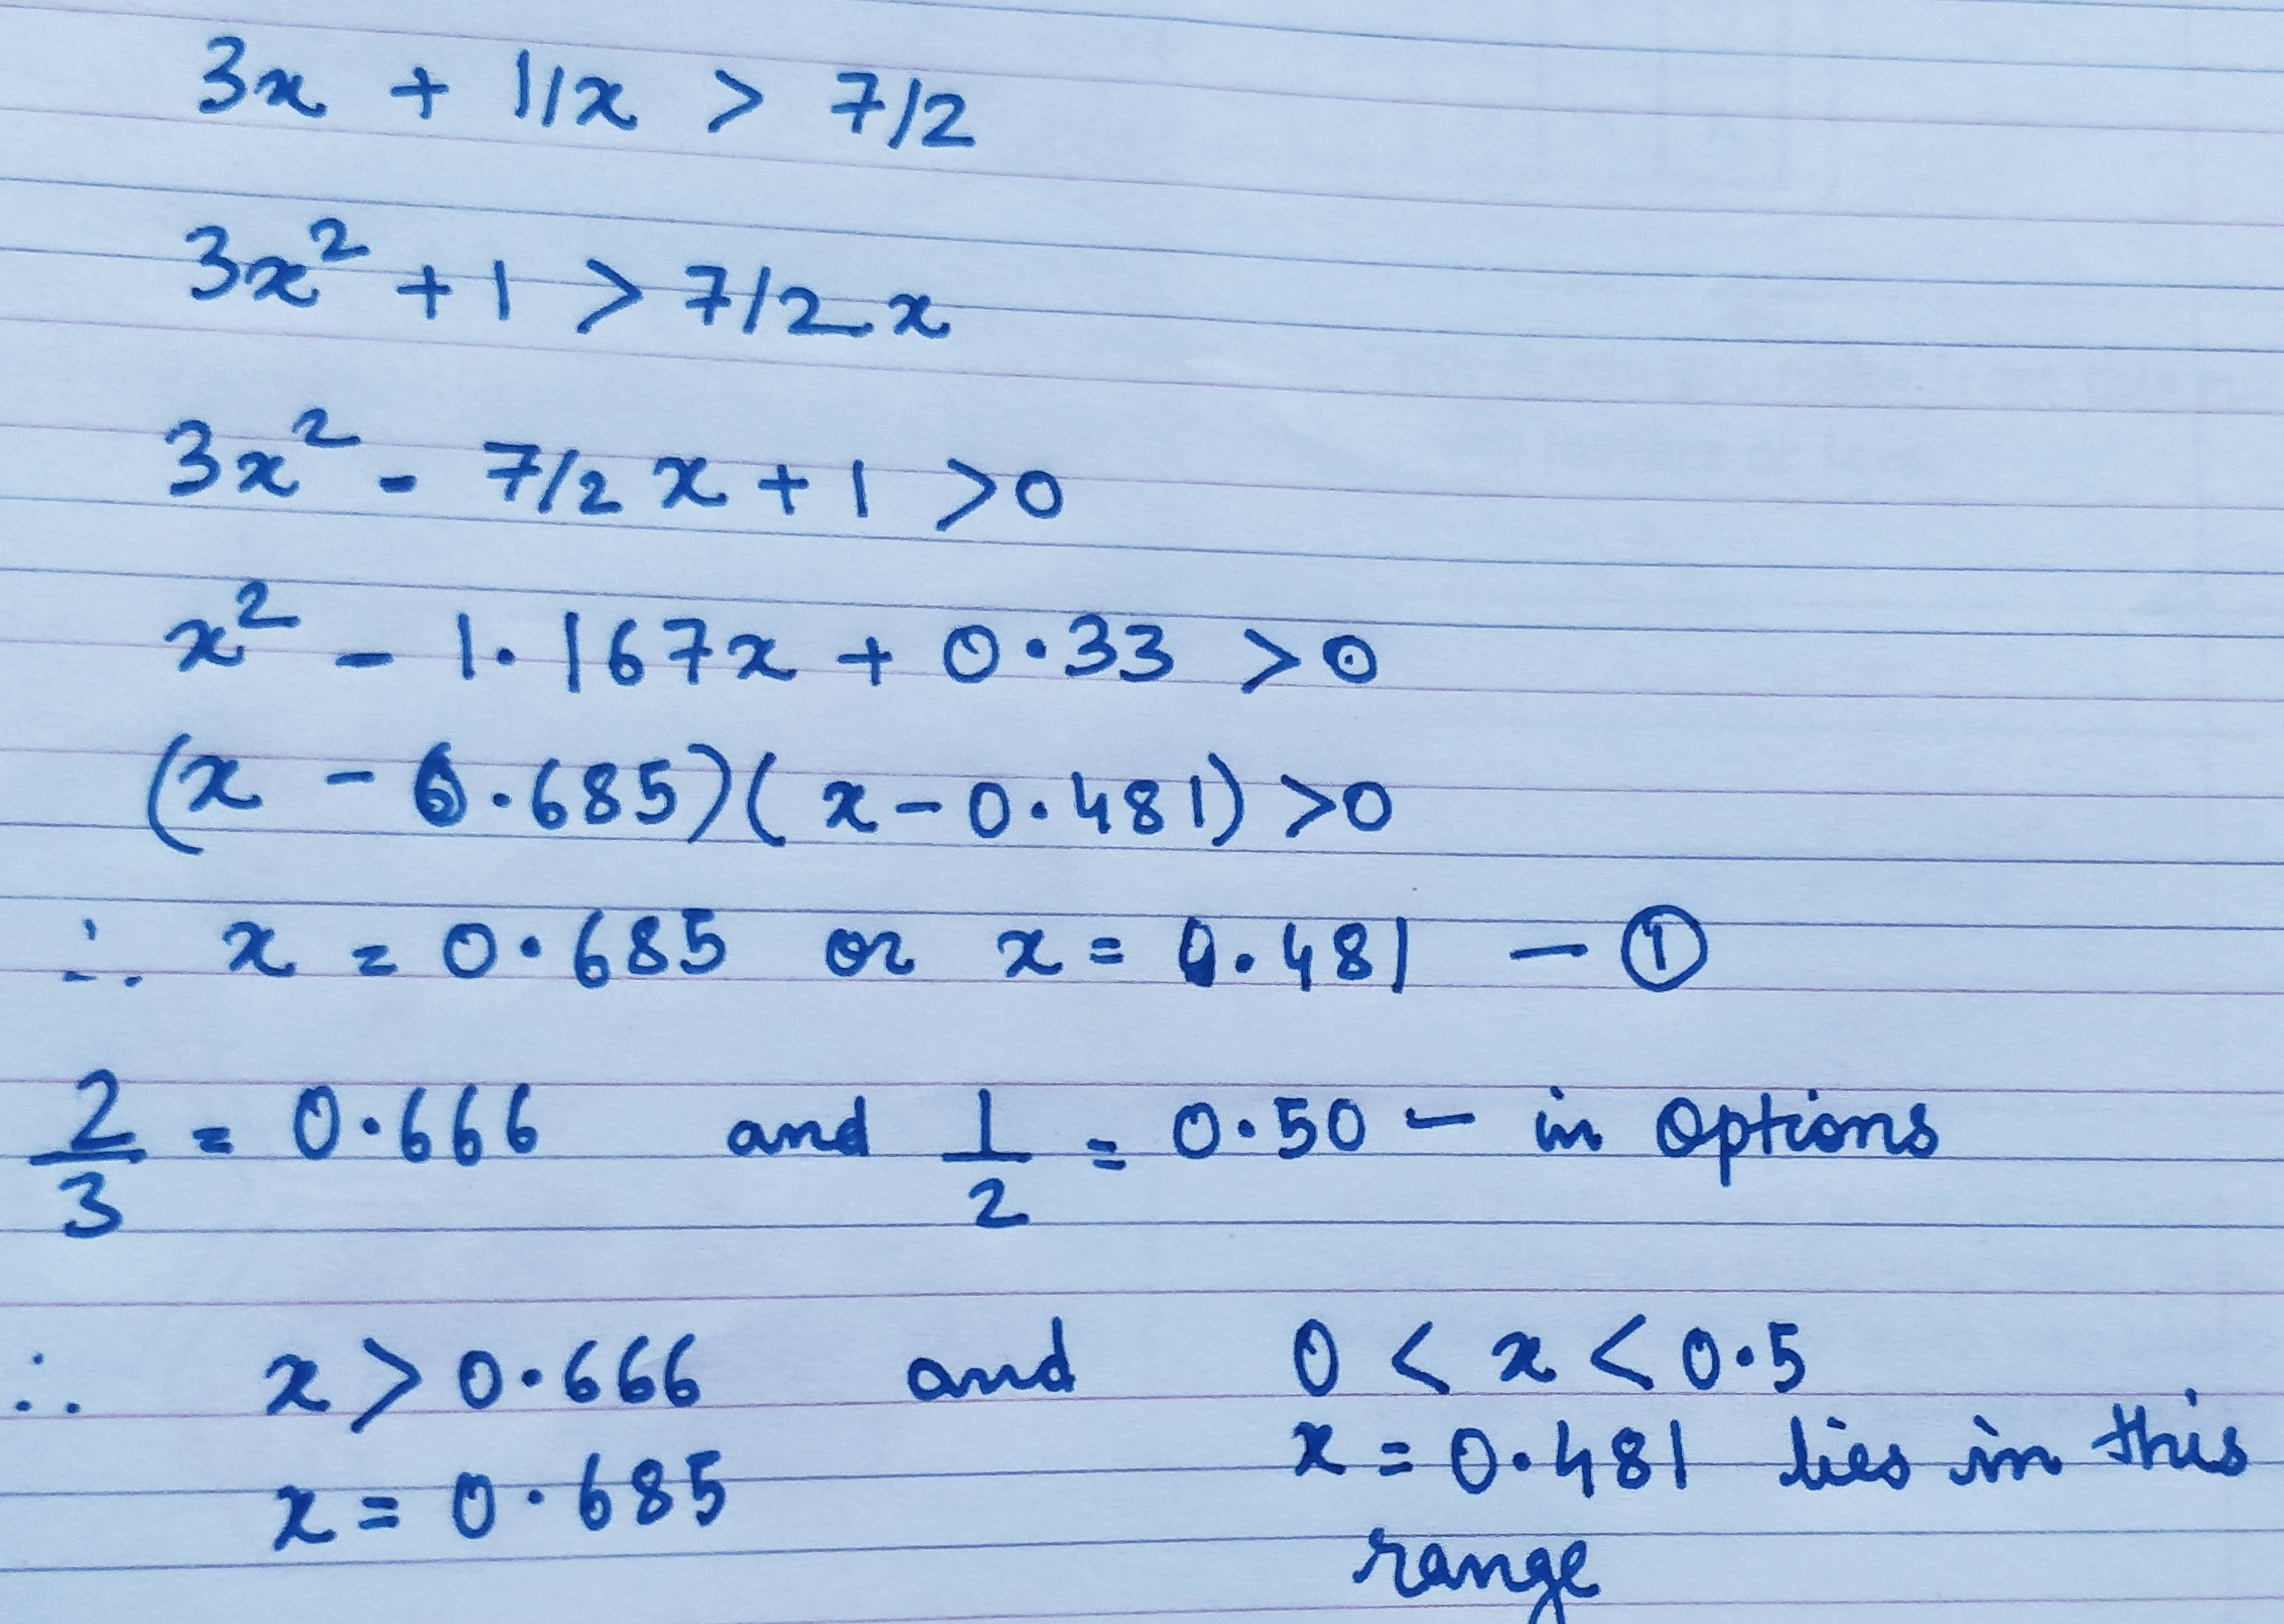 3x + 1/x > 7/2
3x² + 1 > 7/2 x
3x² - 7/2 x + 1 > 0
x² - 1.167x + 0.33 > 0
(x - 0.685)(x - 0.481) > 0
∴ x = 0.685 or x = 0.481 - ①
2/3 = 0.666 and 1/2 = 0.50 - in options
∴ x > 0.666 and 0 < x < 0.5
x = 0.685 x = 0.481 lies in this
range